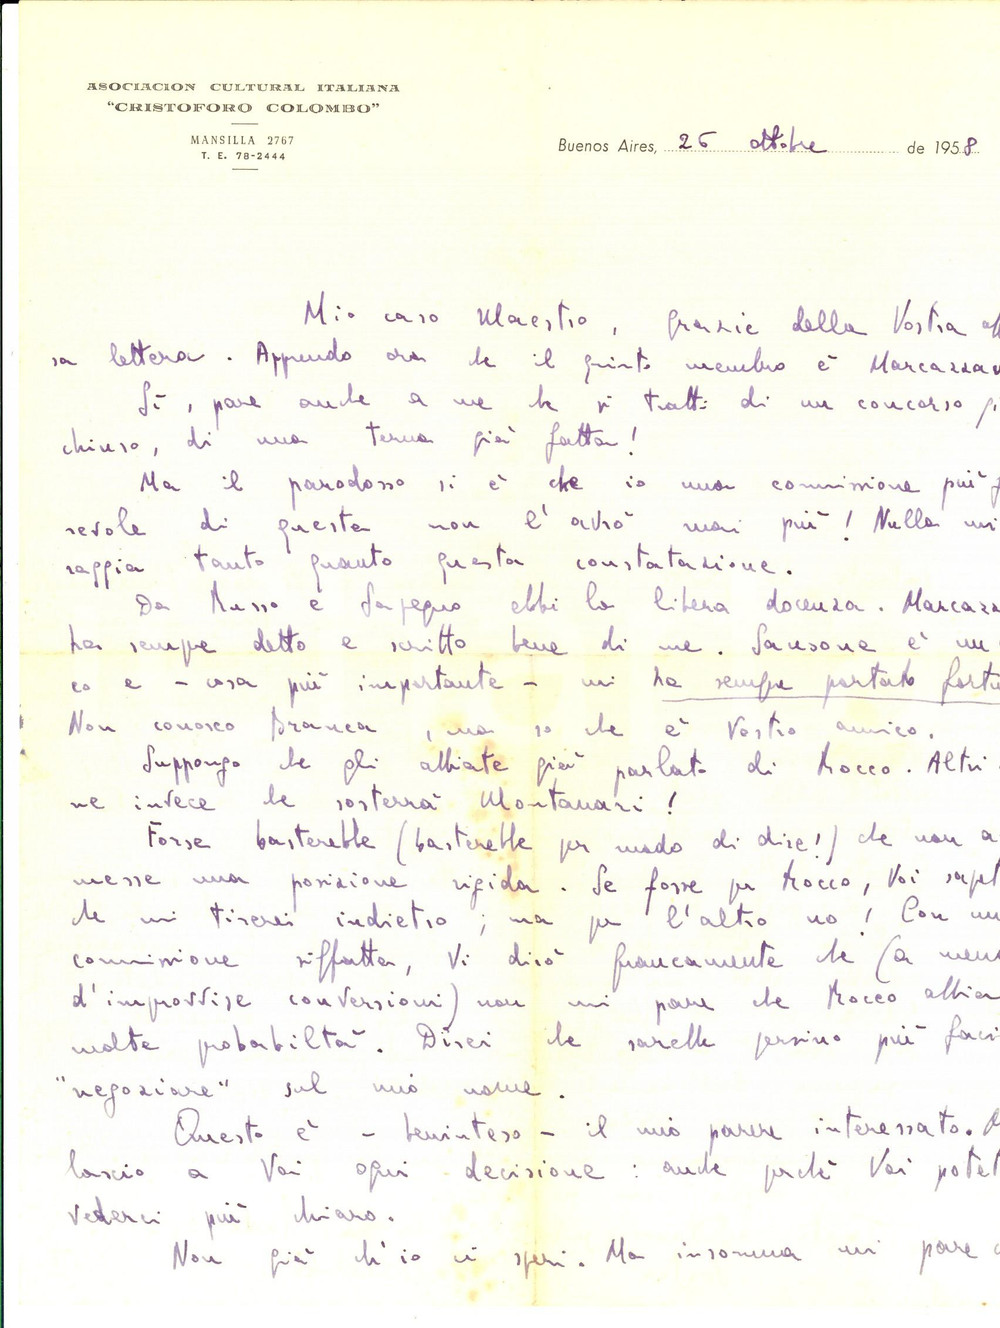 ASOCIACION CULTURAL ITALIANA
"CRISTOFORO COLOMBO"
MANSILLA 2767
T. E. 78-2444
Buenos Aires, 26 ottobre de 1958
Mio caro Maestro, grazie della Vostra
sa lettera. Apprendo ora che il quinto membro è Marcazza
Sì, pare anche a me che si tratti di un concorso gi
chiuso, di una terna già fatta!
Ma il paradosso si è che io una commissione più f
revole di questa non l'avrò mai più! Nulla mi
raggia tanto quanto questa constatazione.
Da Russo e Sapegno ebbi la libera docenza. Marcazz
ha sempre detto e scritto bene di me. Sansone è un
co e - cosa più importante - mi ha sempre portato fortu
Non conosco Branca, ma so che è Vostro amico.
Suppongo che gli abbiate già parlato di Rocco. Altri
ne invece che sosterrà Montanari!
Forse basterebbe (basterebbe per modo di dire!) che non a
messe una posizione rigida. Se fosse per Rocco, Voi sapet
che mi tirerei indietro; ma per l'altro no! Con un
commissione siffatta, Vi dirò francamente che (a men
d'improvvise conversioni) non mi pare che Rocco abbia
molte probabiltà. Direi che sarebbe persino più faci
"negoziare" sul mio nome.
Questo è - beninteso - il mio parere interessato.
lascio a Voi ogni decisione: anche perché Voi potet
vederci più chiaro.
Non già ch'io ci speri. Ma insomma mi pare c